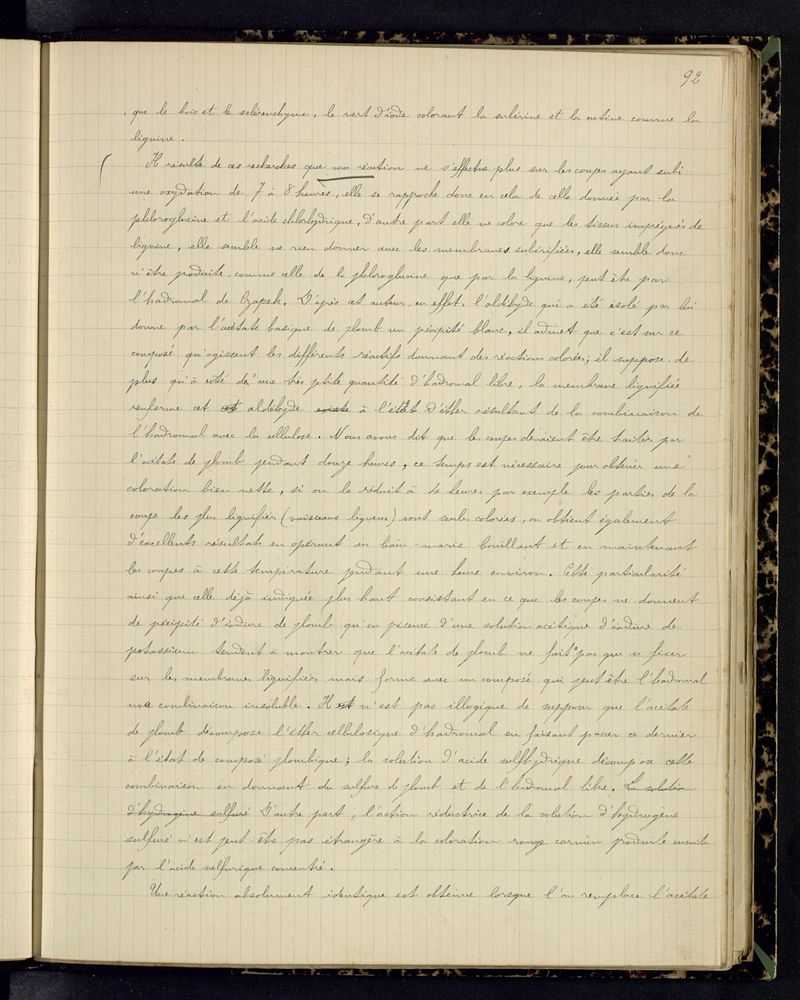 92
que le bois et le sclérenchyme, le vert d'iode colorant la subérine et la cutine comme la
lignine.
Il résulte de ces recherches que ma réaction ne s'effectue plus sur les coupes ayant subi
une oxydation de 7 à 8 heures, elle se rapproche donc en cela de celle donnée par la
phloroglucine et l'acide chlorhydrique, d'autre part elle ne colore que les tissus imprégnés de
lignine, elle semble ne rien donner avec les membranes subérifiées, elle semble donc
n'être produite comme celle de la phloroglucine que par la lignine, peut être par
l'hadromal de Czapek. D'après cet auteur, en effet, l'aldéhyde qui a été isolé par lui
donne par l'acétate basique de plomb un précipité blanc, il admet que c'est sur ce
composé qu'agissent les différents réactifs donnant des réactions colorées; il suppose de
plus qu'à côté de une très ptite quantité d'hadromal libre, la membrane lignifiée
renferme cet et aldéhyde existe à l'état d'éther résultant de la combinaison de
l'hadromal avec la cellulose. Nous avons dit que les coupes devaient être traitées par
l'acétate de plomb pendant douze heures, ce temps est nécessaire pour obtenir une
coloration bien nette, si on le réduit à 4 heures par exemple les parties de la
coupe les plus lignifiées (vaisseaux ligneux) sont seules colorées, on obtient également
d'excellents résultats en opérant au bain-marie bouillant et en maintenant
les coupes à cette température pendant une heure environ. Cette particularité
ainsi que celle déjà indiquée plus haut consistant en ce que les coupes ne donnent
de précipité d'iodure de plomb qu'en présence d'une solution acétique d'iodure de
potassium tendent à montrer que l'acétate de plomb ne fait pas que se fixer
sur les membranes lignifiées mais forme avec un composé qui peut être l'hadromal
une combinaison insoluble. Il est n'est pas illogique de supposer que l'acétate
de plomb décompose l'éther cellulosique d'hadromal en faisant passer ce dernier
à l'état de composé plombique; la solution d'acide sulfhydrique décompose cette
combinaison en donnant du sulfure de plomb et de l'hadromal libre. La solution
d'hydrogène sulfuré D'autre part, l'action réductrice de la solution d'hydrogène
sulfuré n'est peut-être pas étrangère à la coloration rouge carmin produite ensuite
par l'acide sulfurique concentré.
Une réaction absolument identique est obtenue lorsque l'on remplace l'acétate